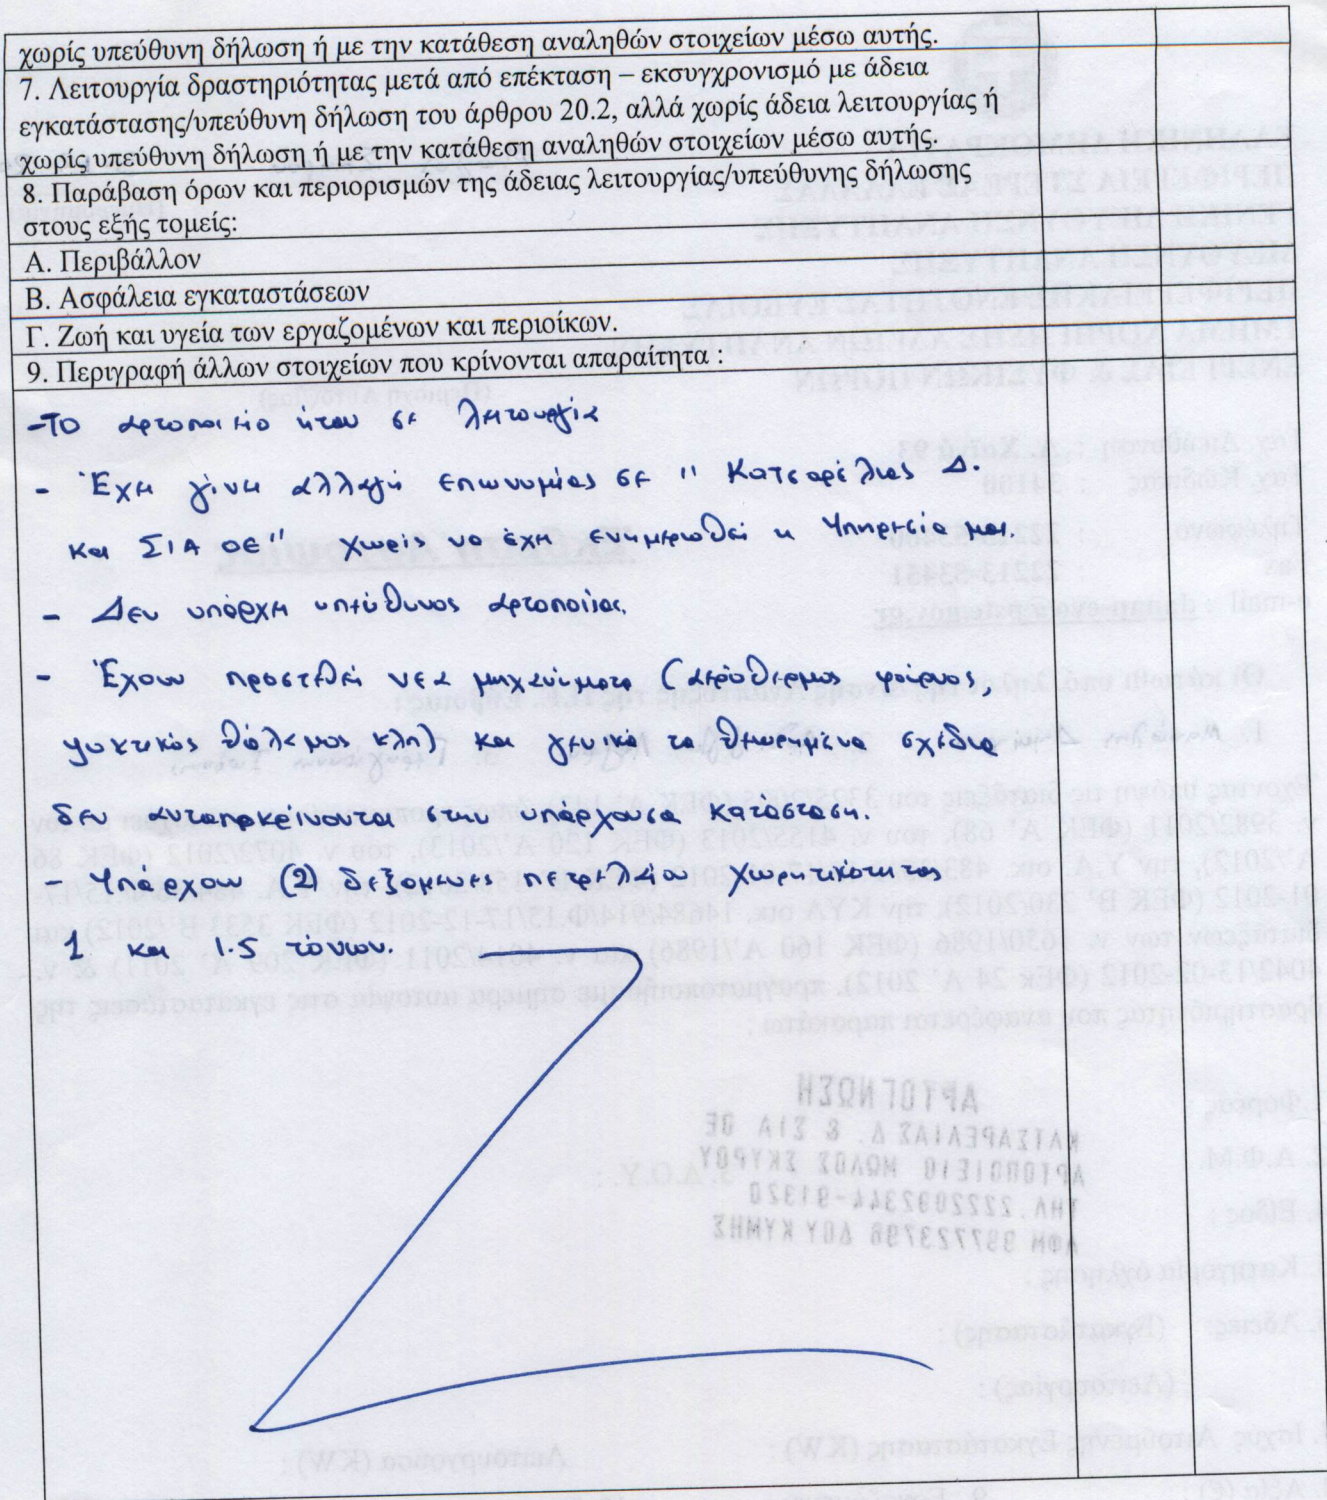 χωρίς υπεύθυνη δήλωση ή με την κατάθεση αναληθών στοιχείων μέσω αυτής.
7. Λειτουργία δραστηριότητας μετά από επέκταση – εκσυγχρονισμό με άδεια
εγκατάστασης/υπεύθυνη δήλωση του άρθρου 20.2, αλλά χωρίς άδεια λειτουργίας ή
χωρίς υπεύθυνη δήλωση ή με την κατάθεση αναληθών στοιχείων μέσω αυτής.
8. Παράβαση όρων και περιορισμών της άδειας λειτουργίας/υπεύθυνης δήλωσης
στους εξής τομείς:
Α. Περιβάλλον
Β. Ασφάλεια εγκαταστάσεων
Γ. Ζωή και υγεία των εργαζομένων και περιοίκων.
9. Περιγραφή άλλων στοιχείων που κρίνονται απαραίτητα :
- Το αρτοποιείο ήταν σε λειτουργία
- Έχει γίνει αλλαγή επωνυμίας σε " Κατσαρέλιας Δ.
και ΣΙΑ ΟΕ" χωρίς να έχει ενημερωθεί η Υπηρεσία μας
- Δεν υπάρχει υπεύθυνος αρτοποιίας.
- Έχουν προστεθεί νέα μηχανήματα (αερόθερμος φούρνος,
ψυκτικός θάλαμος κλπ) και γενικά τα θεωρημένα σχέδια
δεν ανταποκρίνονται στην υπάρχουσα κατάσταση.
- Υπάρχουν (2) δεξαμενές πετρελαίου χωρητικότητας
1 και 1.5 τόνων.
ΑΡΤΟΓΝΩΣΗ
ΚΑΤΣΑΡΕΛΙΑΣ Δ. & ΣΙΑ ΟΕ
ΑΡΤΟΠΟΙΕΙΟ ΜΩΛΟΣ ΣΚΥΡΟΥ
ΤΗΛ. 2222092344-91320
ΑΦΜ 997723796 ΔΟΥ ΚΥΜΗΣ